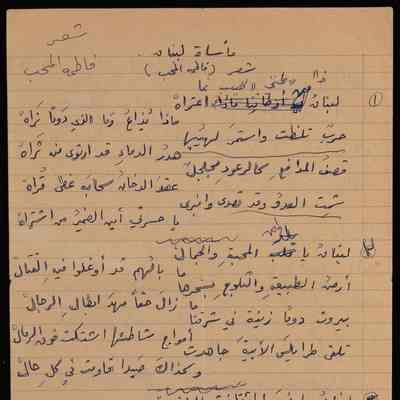 شعر
فاطمة المحب
مأساة لبنان
شعر (فاطمة المحب)
لبنان اعتراهْ
① ماذا يُذاعُ وما الذي دوماً نراهْ
حربٌ تلظت واستمرَ لهيبُها
هدرُ الدماءِ قد ارتوى من ثراهْ
قصفُ المدافعِ كالرعودِ مجلجلٌ
عقدَ الدخانُ سحابةً غطى
شمت العدوُ وقد تصدى وانبرى
يا حسرتي أين الضميرُ من اشتراهْ
لبنانُ يا المحبةِ والجمالْ
ما بالهم قد أوغلوا فيه القتالْ
أرضُ الطبيعةِ والثلوجِ بسحرها
ما زال حقاً مهدَ ابطالِ الرجالْ
بيروت دوماً زينة في شرقنا
أمواج شاطئها اشتكت فوق الرمالْ
تلقى طرابلسَ الأبيةَ جاهدت
وكذاك صيدا قاومت في كل حالْ